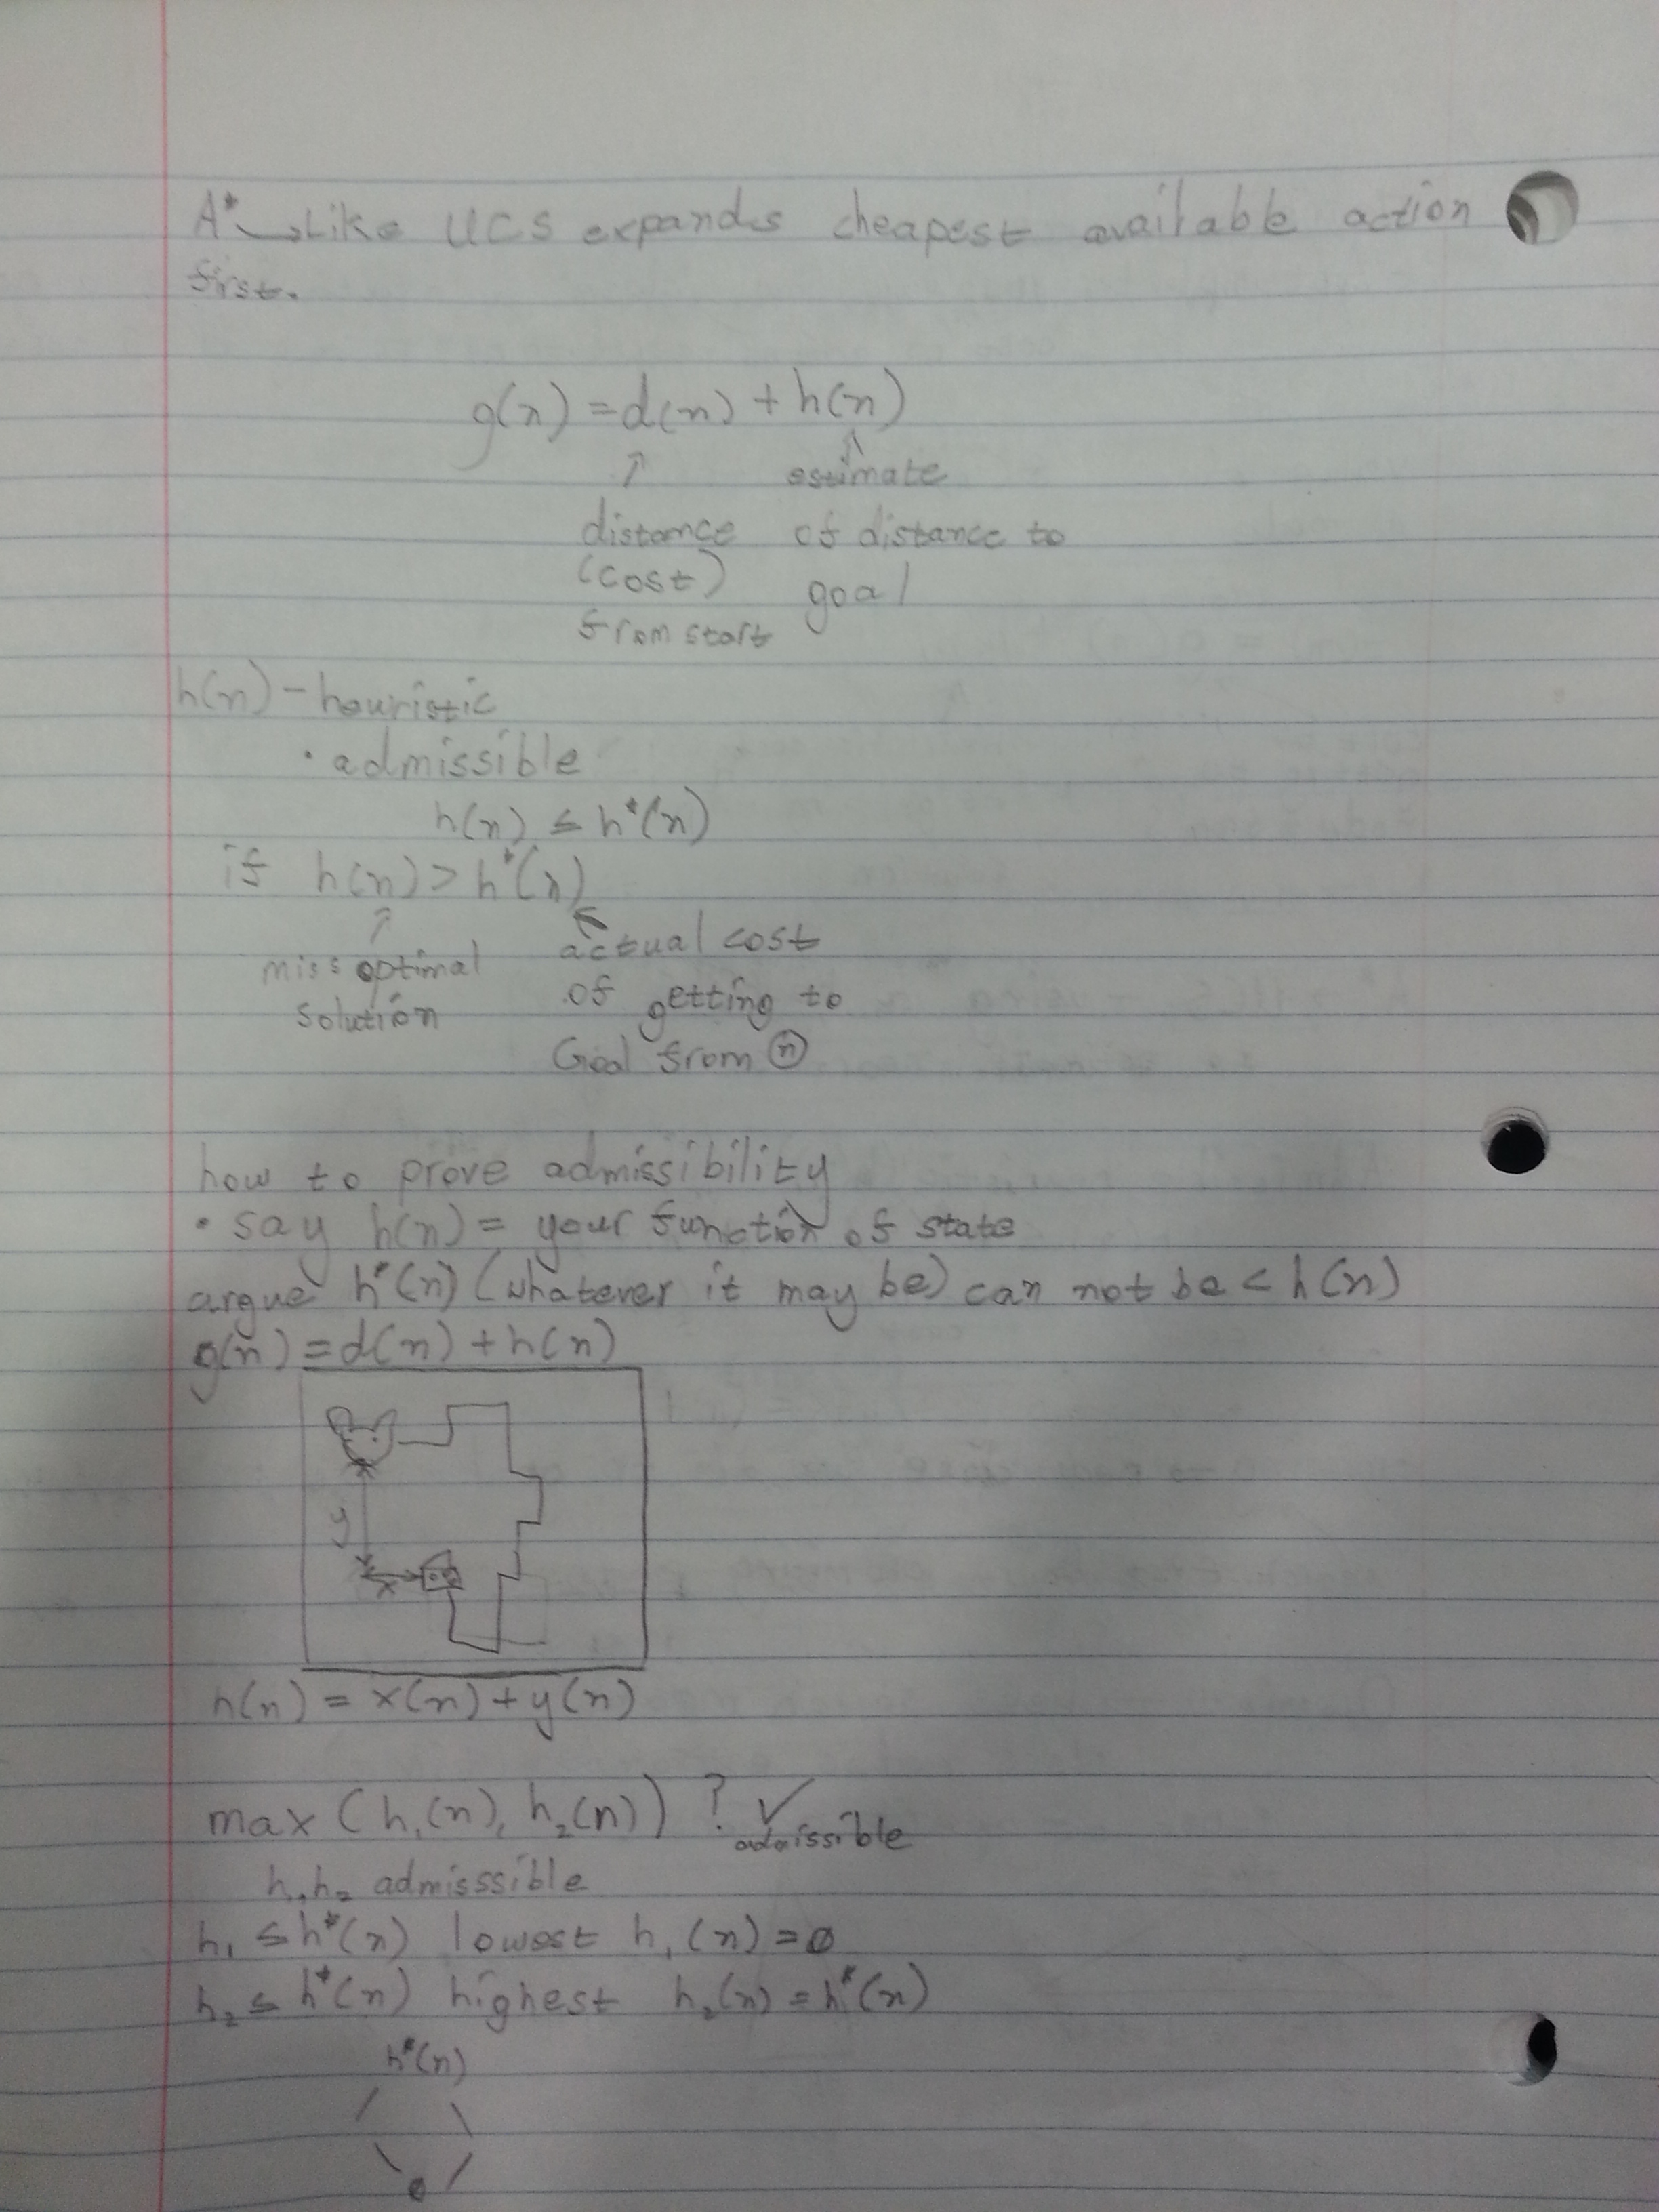 A* → Like UCS expands cheapest available action
first.
g(n) = d(n) + h(n)
↑ ↑
estimate
distance of distance to
(cost) goal
from start
h(n) - heuristic
· admissible
h(n) ≤ h*(n)
if h(n) > h*(n)
miss optimal actual cost
solution of getting to
Goal from n
how to prove admissibility
· say h(n) = your function of state
argue h*(n) (whatever it may be) can not be < h(n)
g(n) = d(n) + h(n)
y
x
h(n) = x(n) + y(n)
max (h₁(n), h₂(n)) ? ✓
admissible
h₁ h₂ admisssible
h₁ ≤ h*(n) lowest h₁(n) = ∅
h₂ ≤ h*(n) highest h₂(n) = h*(n)
h*(n)
/ \
\ /
∅